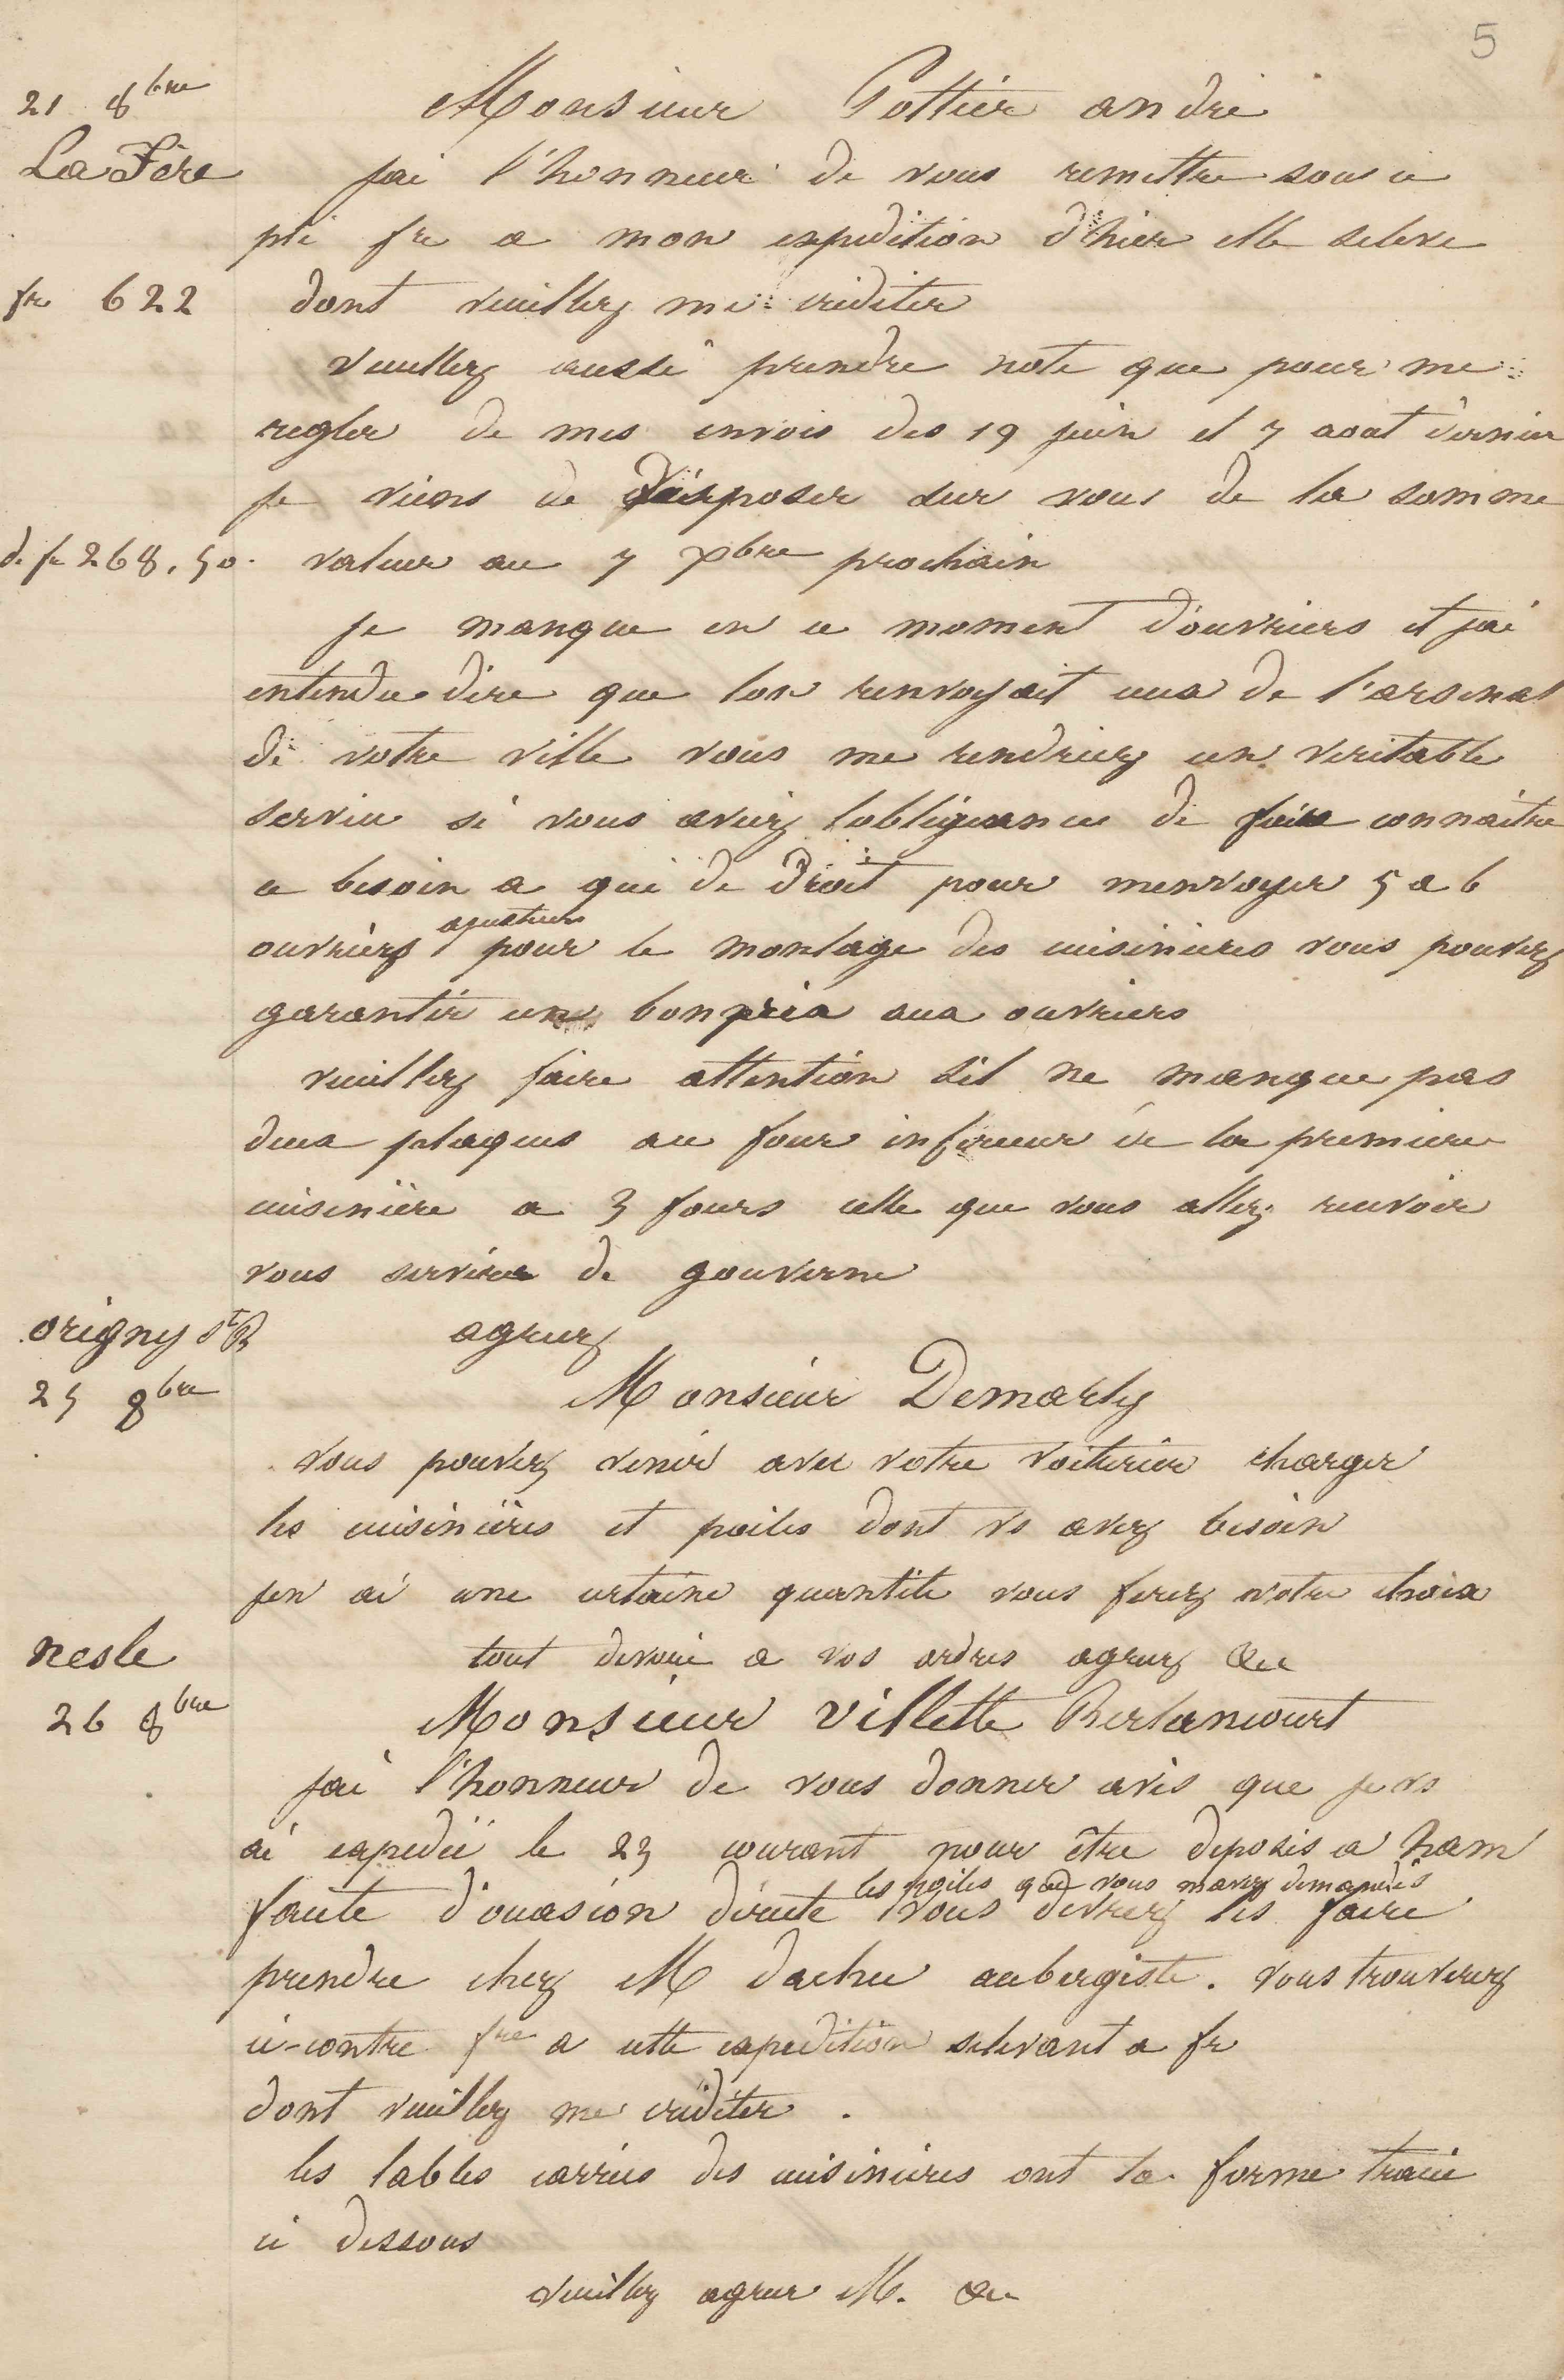 5
21 8bre
Monsieur Pottier andré
La Fère
jai l'honneur de vous remettre sous ce
pli fre a mon expedition d'hier elle seleve
fr 622 dont veuillez me créditer
veuillez aussi prendre note que pour me
regler de mes envois des 19 juin et 7 aoat dernier
je viens de disposer sur vous de la somme
d. fr 268,50. valeur au 7 Xbre prochain
je manque en ce moment d'ouvriers et jai
entendu dire que lon renvoyait eux de l'arsenal
de votre ville vous me rendriez un veritable
service si vous aviez lobligeance de faire connaitre
ce besoin a qui de Droit pour menvoyer 5 a 6
ajusteurs
ouvriers pour le montage des cuisinieres vous pouvez
garantir un bon prix aux ouvriers
veuillez faire attention sil ne manque pas
deux plaques au four inferieur de la premiere
cuisinière a 3 fours celle que vous allez recevoir
vous servira de gouverne
origny Ste B
agreez
25 8bre
Monsieur Demarly
vous pouvez venir avec votre voiturier charger
les cuisinières et poiles dont vs avez besoin
jen ai une certaine quantite vous ferez votre choix
nesle
tout devoué a vos ordres agreez &ce
26 8bre
Monsieur Villette Berlancourt
jai l'honneur de vous donner avis que je vs
ai expedié le 23 courant pour être deposés a ham
les poiles que vous mavez demandés
faute d'occasion directe vous devrez les faire
prendre chez M dachu aubergiste. vous trouverez
ci-contre fre a cette expedition selevant a fr
dont veuillez me créditer.
les tables carrées des cuisinieres ont la forme tracée
ci dessous
veuillez agreer M. &ce